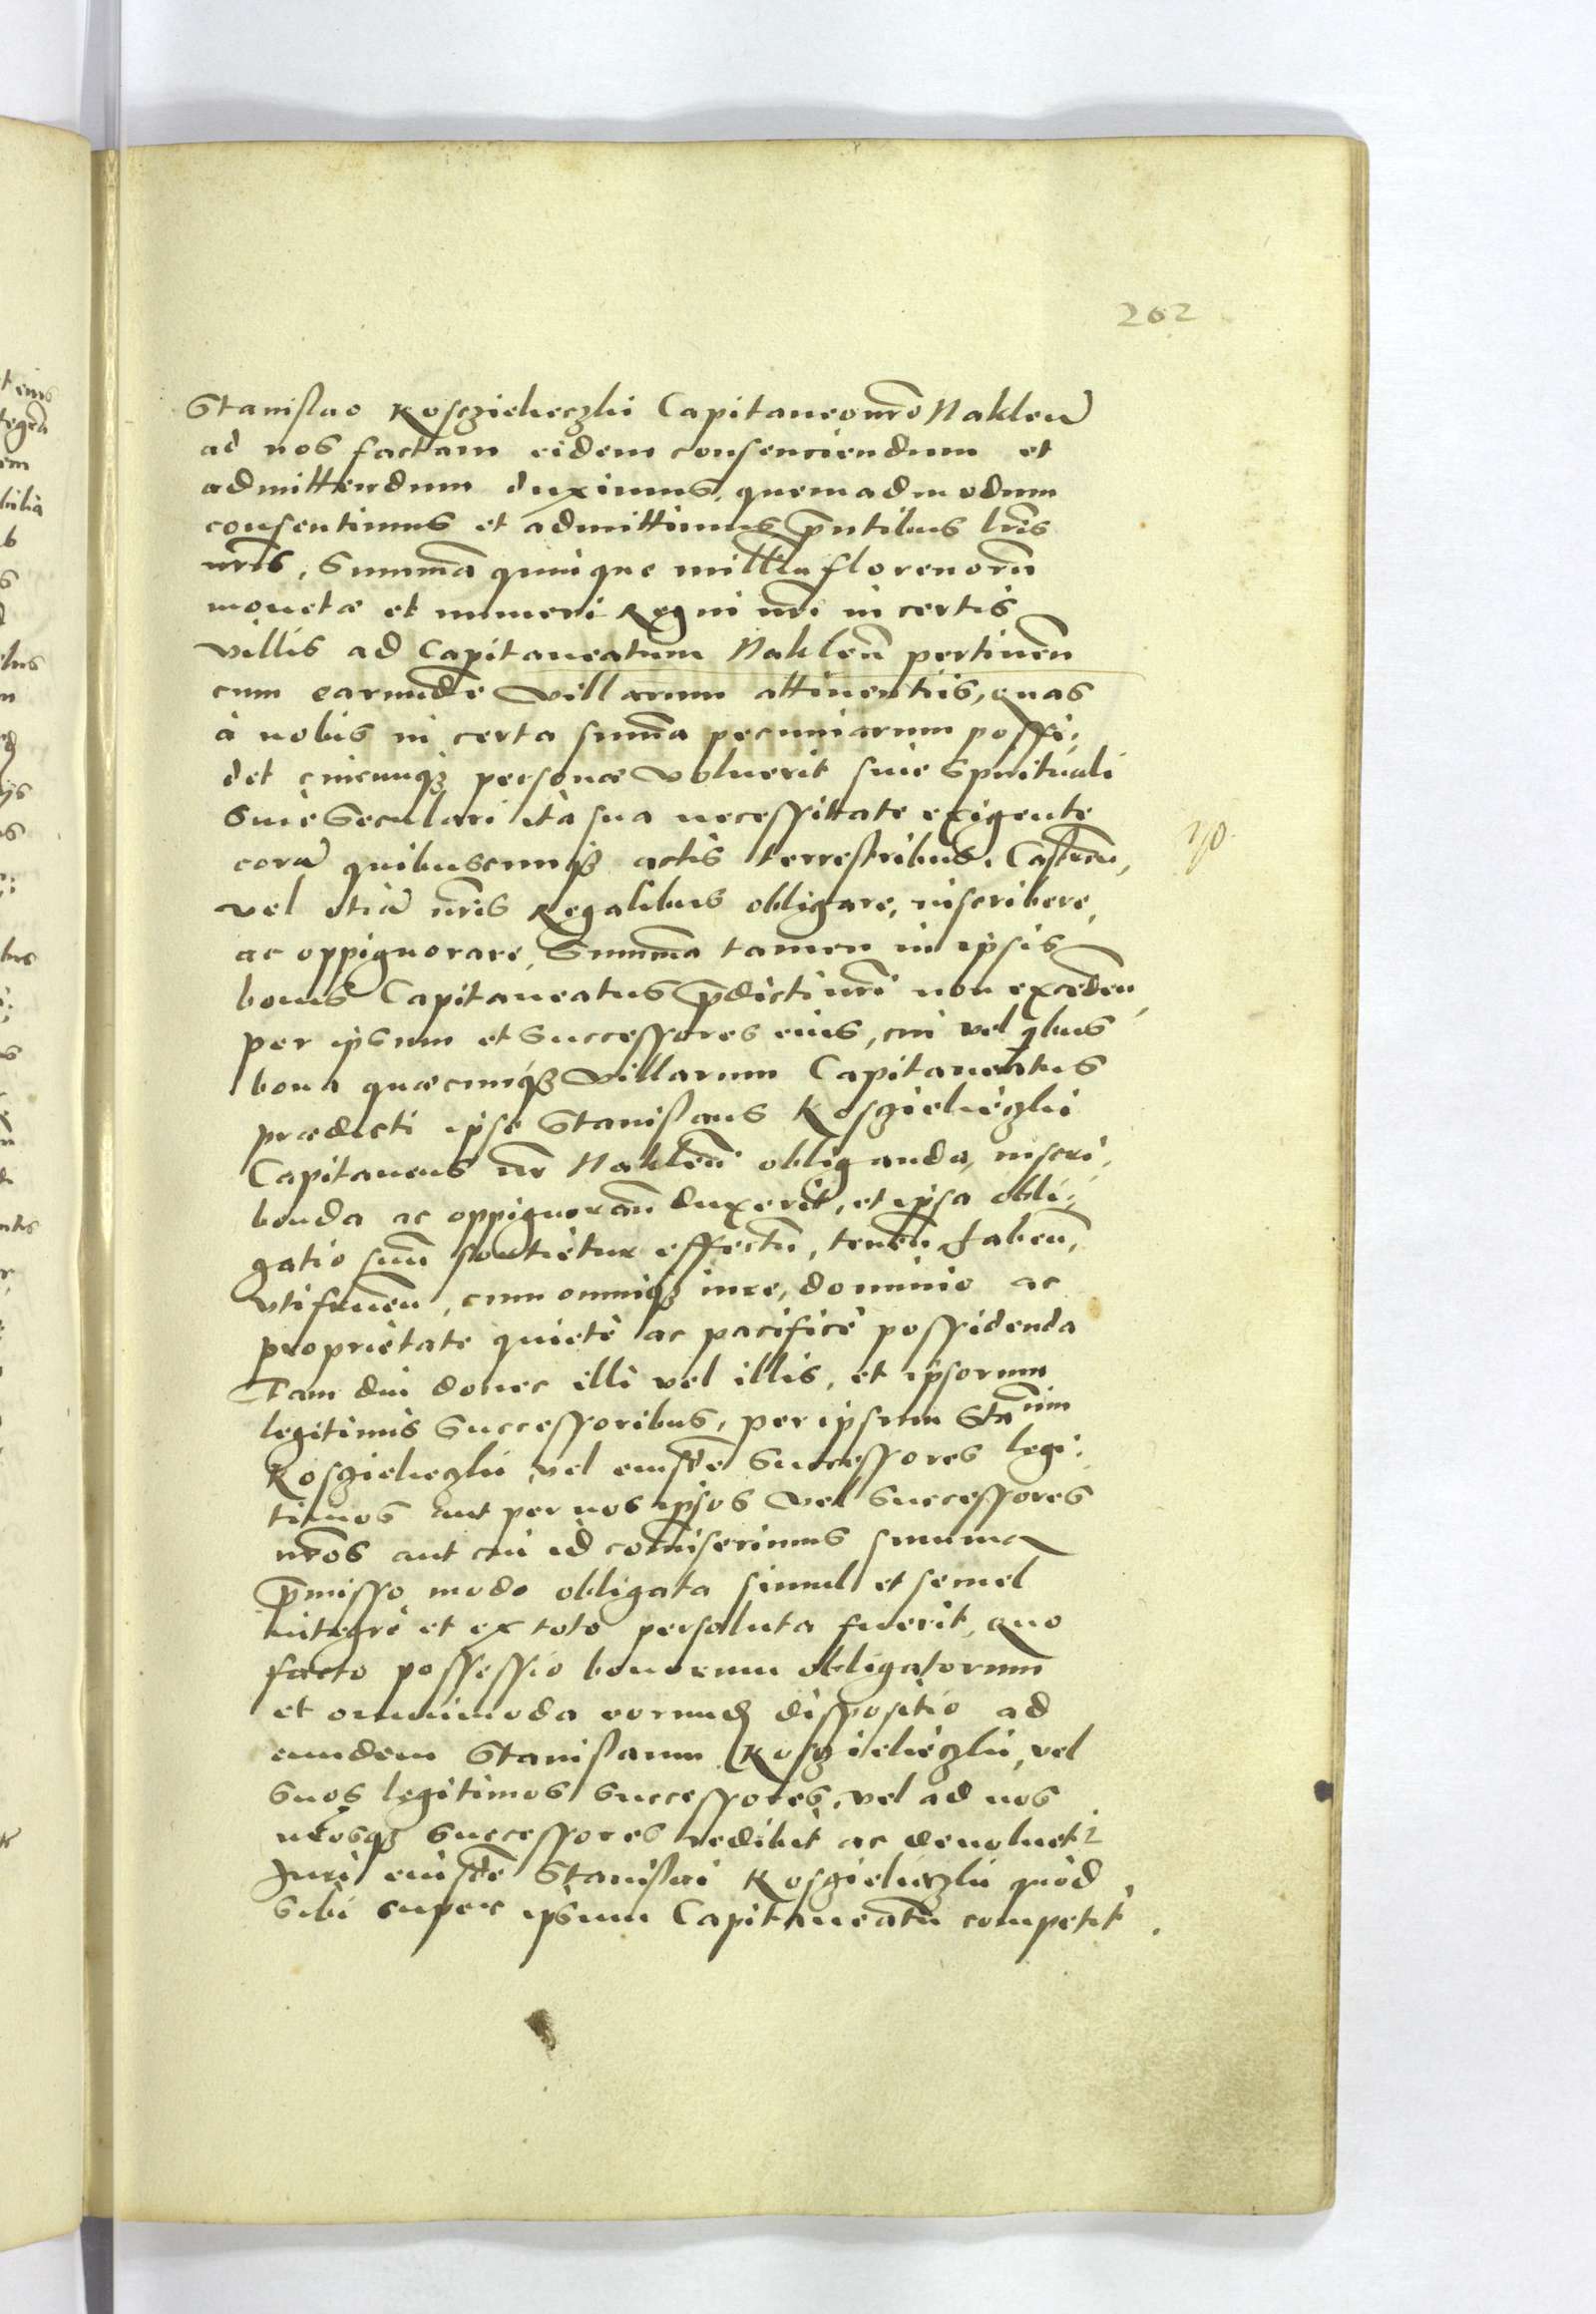 262
Stanislao Kosczieleczki Capitaneo nr̃o Naklen̄
ad nos factam eidem consenciendum et
admittendum duximus, quemadmodum
consentimus et admittimus p̄ntibus lr̃is
nr̃is, Summā quinque millia florenorū
monetæ et numeri Regni nr̃i in certis
villis ad Capitaneatum Naklen̄ pertinen̄
cum earundē villarum attinentiis, quas
à nobis in certa sum̄a pecuniarum possi:
det cuicunqȝ personæ voluerit siue Spirituali
Siue Seculari ita sua necessitate exigente
corā quibuscunqȝ actis terrestribus, Castren̄,
vel etiā nr̃is Regalibus obligare, inscribere,
ac oppignorare, Summa tamen in ipsis
bonis Capitaneatus p̄dicti nr̃i non exceden̄,
per ipsum et Successores eius, cui vel qbus
bona quæcunqȝ villarum Capitaneatus
prædicti ipse Stanislaus Kosczieleczki
Capitaneus nr̃ Naklen̄ obliganda, inscri:
benda ac oppignoran̄ duxerit, et ipsa obli:
gatio suū sortietur effectū, tenen̄ haben̄,
vtifruen̄, cum omniqȝ iure, dominio ac
proprietate quietè ac pacificè possidenda
Tam diu donec illi vel illis, et ipsorum
legitimis Successoribus, per ipsum Sta͞um
Kosczieleczki vel eiusdē Successores legi:
timos aut per nos ipsos vel Successores
nr̃os aut cui id com̄iserimus summa
p̄misso modo obligata simul et semel
integrè et ex toto persoluta fuerit, quo
facto possessio bonorum obligatorum
et omnimoda eorundȝ dispositio ad
eundem Stanislaum Kosczieleczki, vel
suos legitimos Successores, vel ad nos
nr̃osqȝ Successores redibit ac deuoluet2
Juri eiusdē Stanislai Kosczieleczki quod
Sibi super ipsum Capitaneatū competit.